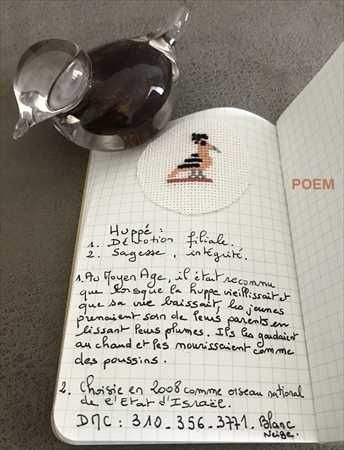 POEM
Huppé :
1. Dévotion filiale.
2. Sagesse, intégrité.
1. Au Moyen Age, il était reconnu
que lorsque la huppe vieillissait et
que sa vie baissait, les jeunes
prenaient soin de leurs parents en
lissant leurs plumes. Ils les gardaient
au chaud et les nourissaient comme
des poussins.
2. Choisie en 2008 comme oiseau national
de l'Etat d'Israël.
DMC : 310_356_3771_Blanc
Neige.